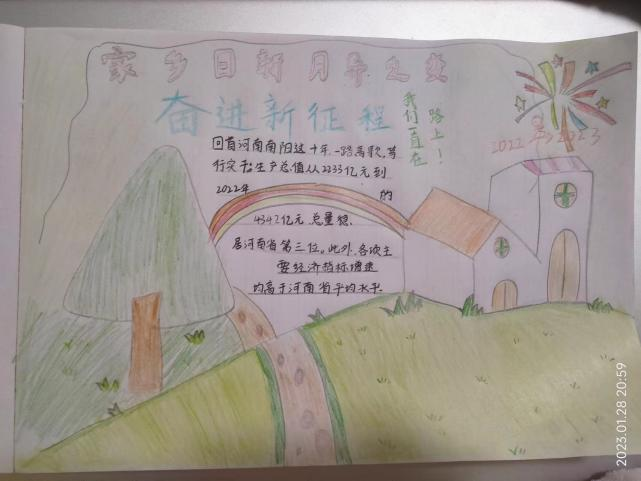 家乡日新月异之变
奋进新征程
我们一直在
路上！
2022 2023
回首河南南阳这十年,一路高歌,笃
行实干,生产总值从2233亿元到
2022年 的
4342亿元,总量稳
居河南省第三位。此外,各项主
要经济指标增速
均高于河南省平均水平
2023.01.28 20:59